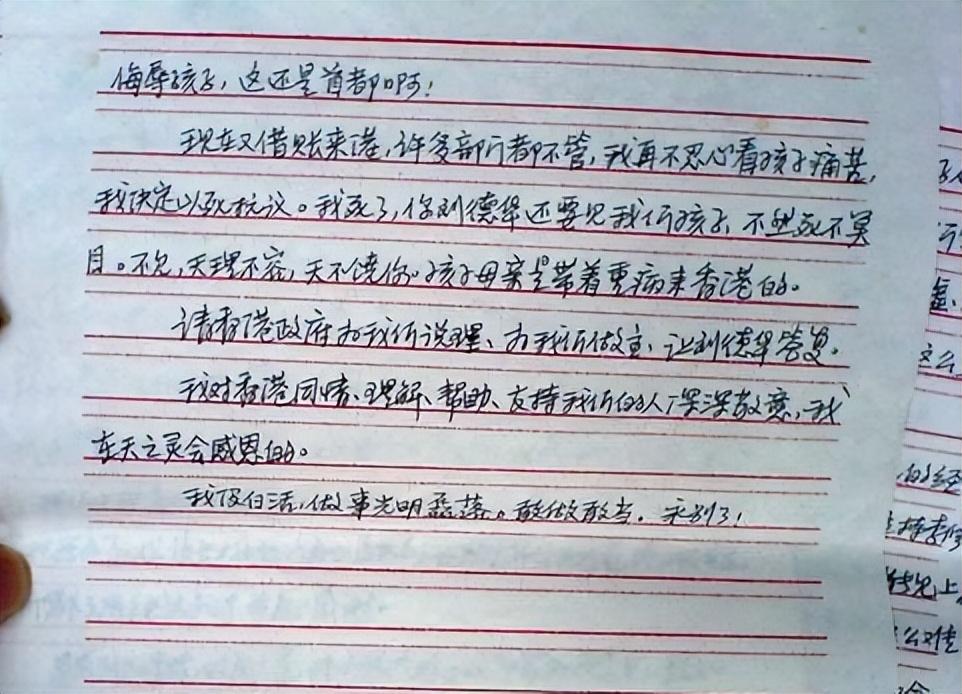 侮辱孩子，这还是首都啊！
现在又借账来港，许多部门都不管，我再不忍心看孩子痛苦，
我决定以死抗议。我死了，你刘德华还要见我们孩子，不然死不冥
目。不见，天理不容，天不饶你。孩子母亲是带着重病来香港的。
请香港政府为我们说理、为我们做主、让刘德华答复。
我对香港同情、理解、帮助、支持我们的人深深敬意，我
在天之灵会感恩的。
我没白活，做事光明磊落。敢做敢当。永别了！
虚、
这么
的经
支持
情况上
么对